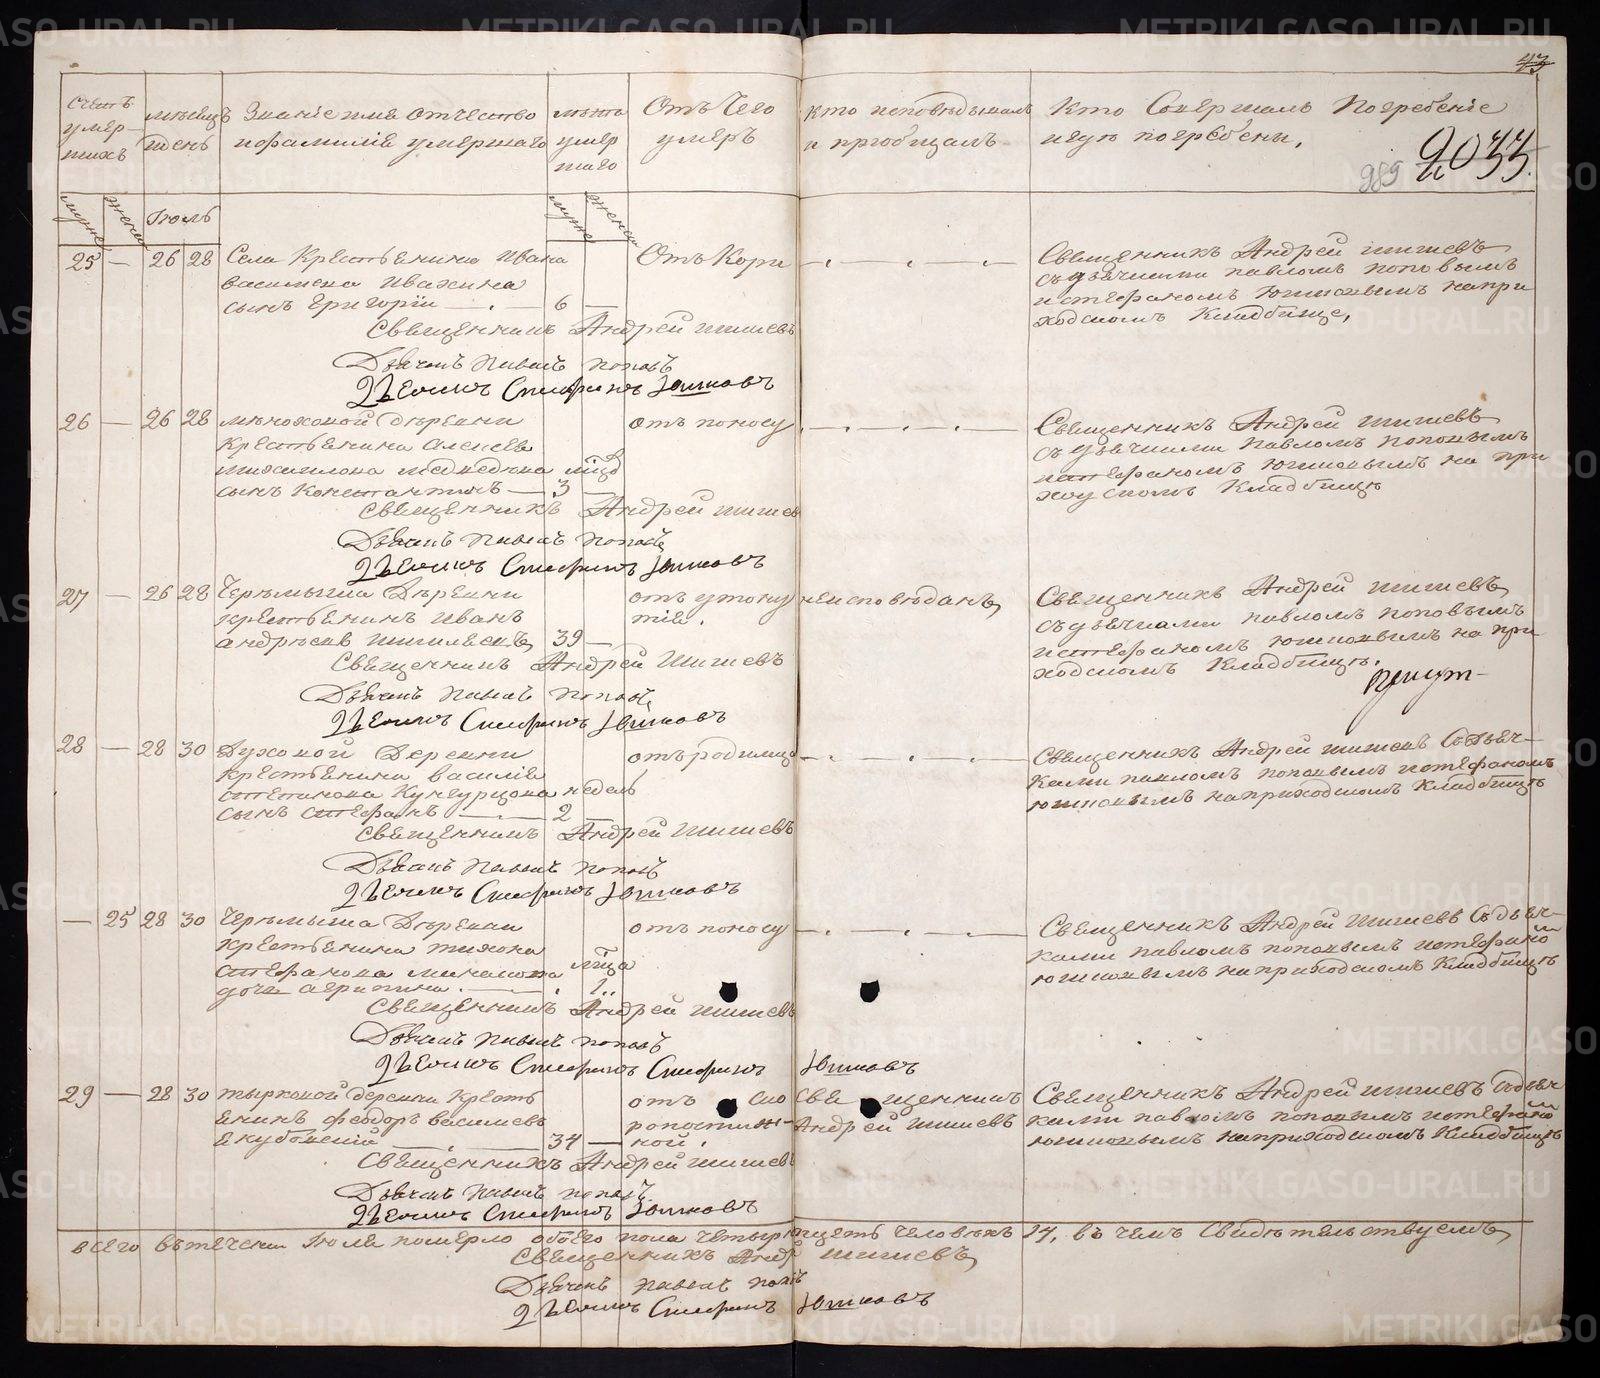 43
Счетъ умер-шихъ
мѣсяцъ день
Званіе имя отчество
и фамилія умершаго
лѣта умер шаго
Отъ Чего
умеръ
кто исповѣдывалъ
и пріобщалъ
Кто Совершалъ Погребеніе
и гдѣ погребены,
989 2033.
мужск женск
Іюль
мужск женск
25 — 26 28 Села Крестьянина Ивана
васильева Ивахина
сынъ Григорій — 6 —
Отъ Кори
Священникъ Андрей шишевъ
съ дьячками павломъ поповымъ
и стефаномъ Юшковымъ на при
ходскомъ Кладбище,
Священникъ Андрей шишевъ
Дьячекъ Павелъ поповъ
Дьячекъ Стефанъ Юшковъ
26 — 26 28
Деревни
Крестьянина Алексея
сынъ Константинъ — 3 —
мѣсяц
отъ поносу
Священникъ Андрей шишевъ
съ дьячками Павломъ поповымъ
и стефаномъ Юшковымъ на при
ходскомъ Кладбищѣ
Священникъ Андрей шишев
Дьячекъ Павелъ поповъ
Дьячекъ Стефанъ Юшковъ
27 — 26 28 Черемыша Деревни
крестьянинъ Иванъ
андреевъ 39 —
отъ утону
тіе.
неисповѣданъ
Священникъ Андрей шишевъ
съ дьячками павломъ поповымъ
и стефаномъ юшковымъ на при
ходскомъ Кладбищѣ.
Священникъ Андрей Шишевъ
Дьячекъ Павелъ поповъ
Дьячекъ Стефанъ Юшковъ
28 — 28 30 Духовой Деревни
крестьянина василія
степанова Кунгурцова недель
сынъ стефанъ — 2
отъ родимца
Священникъ Андрей шишевъ Съ Дьяч-
ками павломъ поповымъ и стефаномъ
юшковымъ на приходскомъ Кладбищѣ
Священникъ Андрей Шишевъ
Дьячекъ Павелъ поповъ
Дьячекъ Стефанъ Юшковъ
— 25 28 30 Черемыша Деревни
крестьянина тихона
стефанова
дочь агрипина — 1..
мѣсяца
отъ поносу
Священникъ Андрей шишевъ Съ дьяч-
ками павломъ поповымъ и стефаномъ
юшковымъ на приходскомъ Кладбищѣ
Священникъ Андрей шишевъ
Дьячекъ Павелъ поповъ
Дьячекъ Стефанъ Стефанъ Юшковъ
29 — 28 30 деревни Кресть
янинъ федоръ васильевъ
34 —
отъ ско
ропостиж-
ной.
священникъ
Андрей шишевъ
Священникъ Андрей шишевъ Съ дьяч
ками павломъ поповымъ и стефаномъ
юшковымъ на приходскомъ Кладбищѣ
Священникъ Андрей шишевъ
Дьячекъ Павелъ поповъ
Дьячекъ Стефанъ Юшковъ
всего въ течении Іюля померло обоего пола четырнацеть человѣкъ 14, въ чемъ Свидѣтельствуемъ,
Священникъ Андрей шишевъ
Дьячекъ Павелъ поповъ
Дьячекъ Стефанъ Юшковъ
METRIKI.GASO-URAL.RU